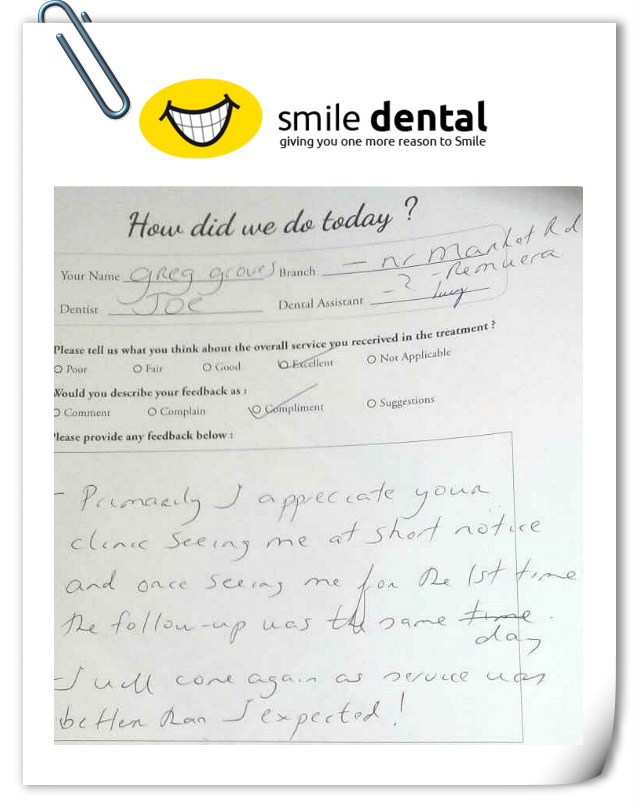 smile dental
giving you one more reason to Smile
How did we do today ?
Your Name Greg Groves Branch - nr Market Rd
- Remuera
Dentist JOE Dental Assistant - ? Lucy
Please tell us what you think about the overall service you recerived in the treatment ?
O Poor O Fair O Good O Excellent O Not Applicable
Would you describe your feedback as :
O Comment O Complain O Compliment O Suggestions
Please provide any feedback below :
- Primarily I appreciate your
clinic seeing me at short notice
and once seeing me for the 1st time
the follow-up was the same time.
day
- I will come again as service was
better than I expected!